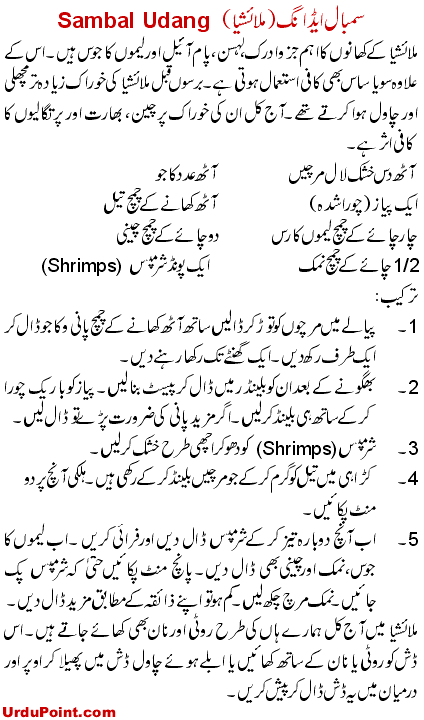 سمبال ایڈانگ (ملائشیا) Sambal Udang
ملائشیا کے کھانوں کا اہم جز و ادرک، لہسن، پام آئیل اور لیموں کا جوس ہیں۔ اس کے
علاوہ سویا ساس بھی کافی استعمال ہوتی ہے۔ برسوں قبل ملائشیا کی خوراک زیادہ تر مچھلی
اور چاول ہوا کرتے تھے۔ آج کل ان کی خوراک پر چین، بھارت اور پرتگالیوں کا
کافی اثر ہے۔
آٹھ دس خشک لال مرچیں آٹھ عدد کاجو
ایک پیاز (چورا شدہ) آٹھ کھانے کے چمچ تیل
چار چائے کے چمچ لیموں کا رس دو چائے کے چمچ چینی
1/2 چائے کے چمچ نمک ایک پونڈ شرمپس (Shrimps)
ترکیب:
1۔ پیالے میں مرچوں کو توڑ کر ڈالیں ساتھ آٹھ کھانے کے چمچ پانی و کاجو ڈال کر
ایک طرف رکھ دیں۔ ایک گھنٹے تک رکھا رہنے دیں۔
2۔ بھگونے کے بعد ان کو بلینڈر میں ڈال کر پیسٹ بنالیں۔ پیاز کو باریک چورا
کر کے ساتھ ہی بلینڈ کر لیں۔ اگر مزید پانی کی ضرورت پڑے تو ڈال لیں۔
3۔ شرمپس (Shrimps) کو دھو کر اچھی طرح خشک کر لیں۔
4۔ کڑاہی میں تیل کو گرم کر کے جو مرچیں بلینڈ کر کے رکھی ہیں۔ ہلکی آنچ پر دو
منٹ پکائیں۔
5۔ اب آنچ دوبارہ تیز کر کے شرمپس ڈال دیں اور فرائی کریں۔ اب لیموں کا
جوس، نمک اور چینی بھی ڈال دیں۔ پانچ منٹ پکائیں حتیٰ کہ شرمپس پک
جائیں۔ نمک مرچ چکھ لیں۔ کم ہو تو اپنے ذائقہ کے مطابق مزید ڈال دیں۔
ملائشیا میں آج کل ہمارے ہاں کی طرح روٹی اور نان بھی کھائے جاتے ہیں۔ اس
ڈش کو روٹی یا نان کے ساتھ کھائیں یا ابلے ہوئے چاول ڈش میں پھیلا کر اوپر اور
درمیان میں یہ ڈش ڈال کر پیش کریں۔
UrduPoint.com